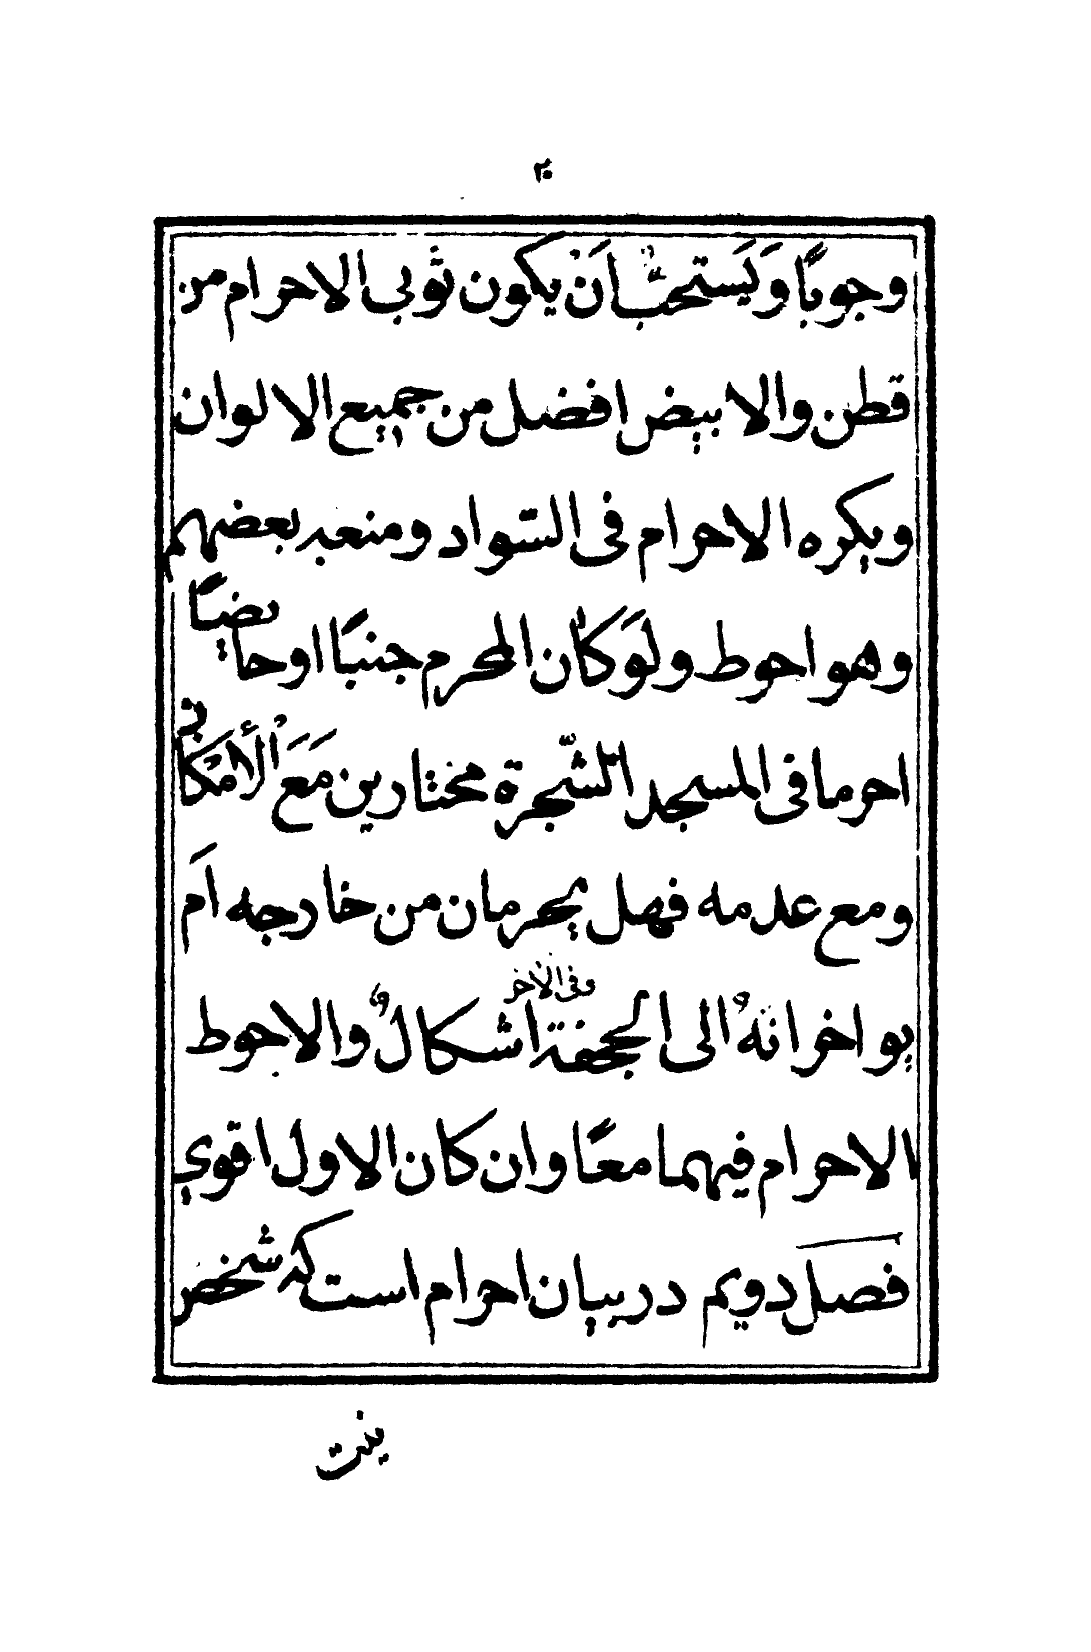 ٢٠
وجوبًا وَيَستحبُّ اَنْ يكون ثوبى الاحرام من
قطن والابيض افضل من جميع الالوان
ويكره الاحرام فى السّواد ومنعه بعضهم
وهو احوط ولَو كان المحرم جنبًا او حايضًا
احرما فى المسجد الشّجرة مختارين مَعَ الْأمْكان
ومع عدمه فهل يحرمان من خارجه اَم
يواخرانهُ الى الجحفة اشكالٌ والاحوط
وفى الاخر
الاحرام فيهما معًا وان كان الاول اقوي
فصل دويم در بيان احرام است كه شخص
ينت